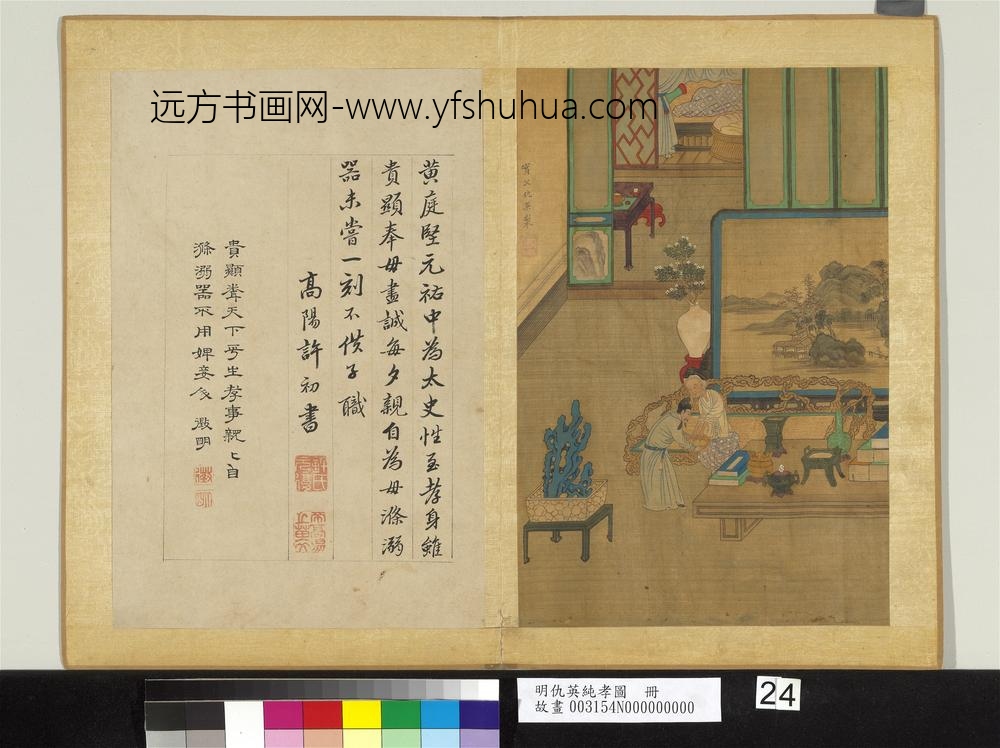 远方书画网-www.yfshuhua.com
黄庭堅元祐中為太史性至孝身雖
貴顯奉母盡誠每夕親自為母滌溺
器未嘗一刻不供子職
高陽許初書
貴顯聞天下平生孝事親親自
滌溺器不用婢妾人 徵明
實父仇英製
明仇英純孝圖 冊
故畫 003154N000000000
24